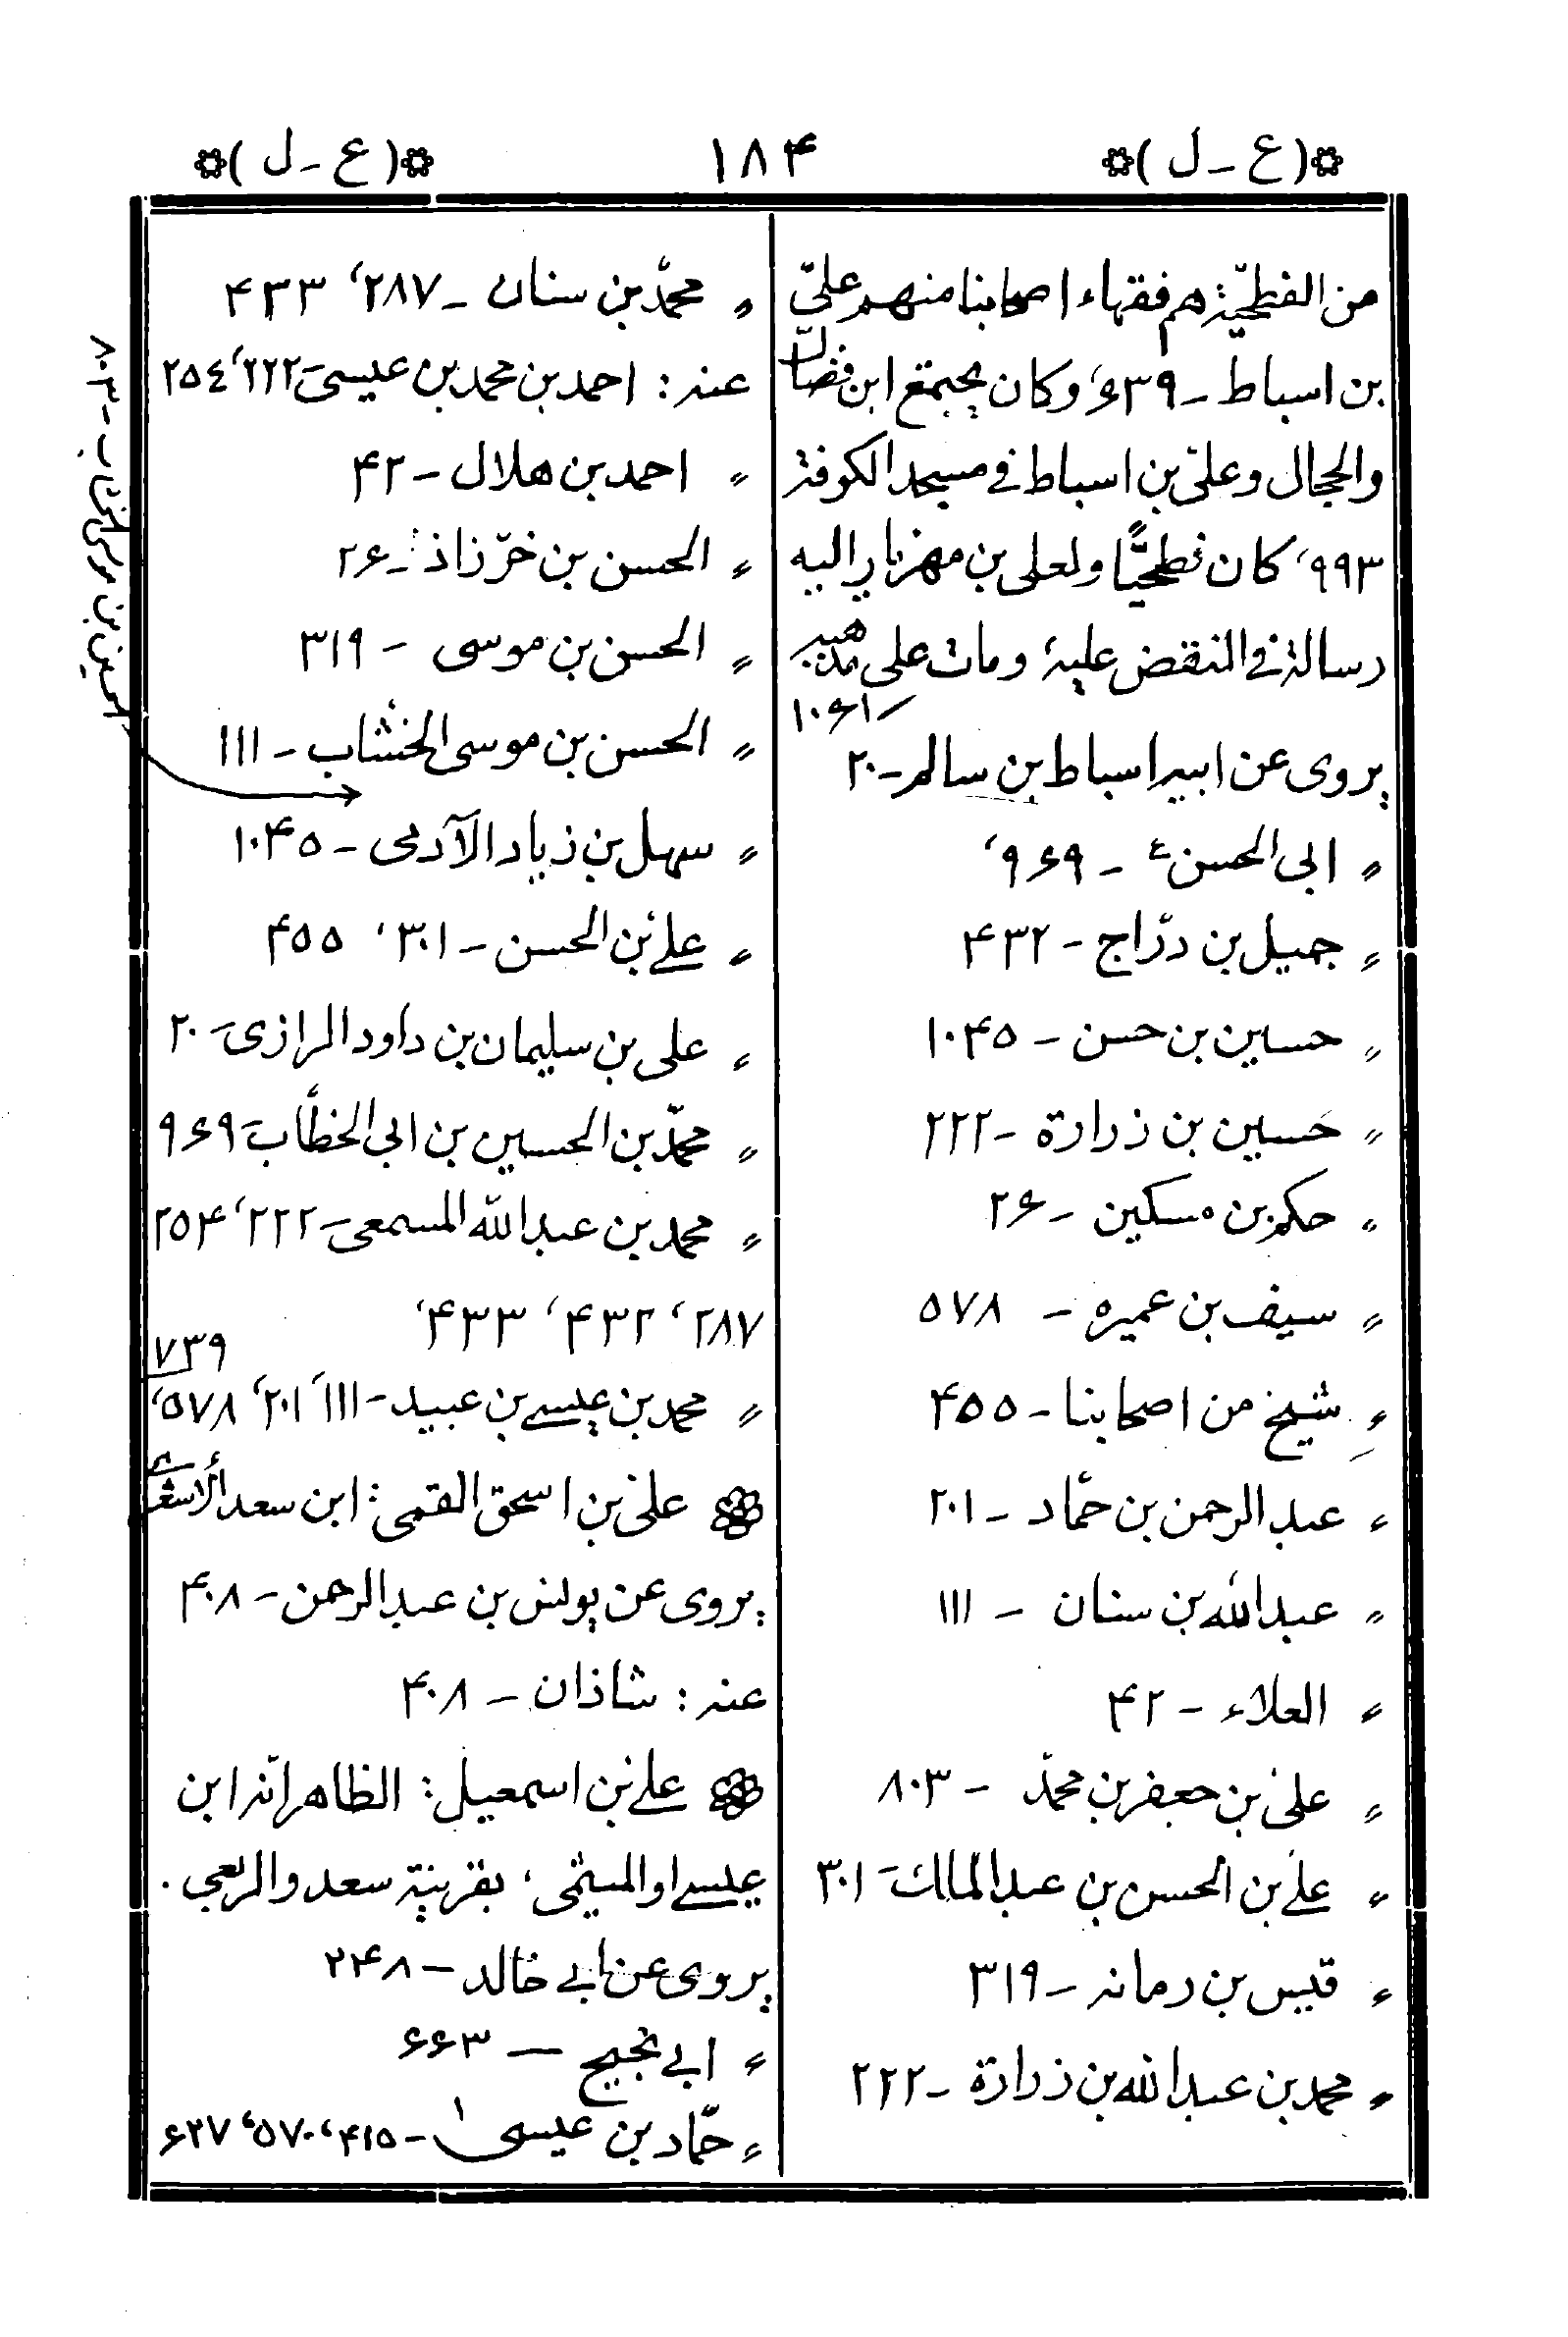 ❊( ع - ل )❊ ۱۸۴ ❊( ع - ل )❊
من الفطحيّة: هم فقهاء اصحابنا منهم علىّ
بن اسباط - ۶۳۹، وكان يجتمع ابن فضّال
والحجال وعلىّ بن اسباط في مسجد الكوفة
۹۹۳، كان فطحيًّا ولعلى بن مهزيار اليه
رسالة في النقض عليه ومات على مذهبه
- ۱۰۶۱
يروى عن ابيه اسباط بن سالم - ۲۰
〃 ابى الحسن ع - ۹۶۹،
〃 جميل بن درّاج - ۴۳۲
〃 حسين بن حسن - ۱۰۴۵
〃 حسين بن زرارة - ۲۲۲
〃 حكم بن مسكين - ۲۶
〃 سيف بن عميره - ۵۷۸
〃 شيخ من اصحابنا - ۴۵۵
〃 عبد الرحمن بن حمّاد - ۲۰۱
〃 عبد الله بن سنان - ۱۱۱
〃 العلاء - ۴۲
〃 علىّ بن جعفر بن محمّد - ۸۰۳
〃 علىّ بن الحسن بن عبد الملك - ۳۰۱
〃 قيس بن رمانه - ۳۱۹
〃 محمد بن عبد الله بن زرارة - ۲۲۲
〃 محمّد بن سنان - ۲۸۷، ۴۳۳
عنه : احمد بن محمد بن عيسى - ۲۲۲، ۲۵٤
〃 احمد بن هلال - ۴۲
〃 الحسن بن خرّزاذ - ۲۶
〃 الحسن بن موسى - ۳۱۹
〃 الحسن بن موسى الخشّاب - ۱۱۱
الحسين بن موسى الخشاب - ۸۰۳
〃 سهل بن زياد الآدمى - ۱۰۴۵
〃 علىّ بن الحسن - ۳۰۱، ۴۵۵
〃 على بن سليمان بن داود الرازى - ۲۰
〃 محمّد بن الحسين بن ابى الخطّاب - ۹۶۹
〃 محمد بن عبد الله المسمعى - ۲۲۲، ۲۵۴
۲۸۷، ۴۳۲، ۴۳۳،
۷۳۹
〃 محمد بن عيسى بن عبيد - ۱۱۱، ۲۰۱، ۵۷۸،
❊ علىّ بن اسحق القمى : ابن سعد الأشعرى
يروى عن يونس بن عبد الرحمن - ۴۰۸
عنه : شاذان - ۴۰۸
❊ علىّ بن اسمعيل : الظاهر انّه ابن
عيسى او الميثمى، بقرينة سعد والربعى .
يروى عن ابى خالد - ۲۴۸
〃 ابى نجيح - ۶۶۳
〃 حمّاد بن عيسى - ۴۱۵، ۵۷۰، ۶۲۷